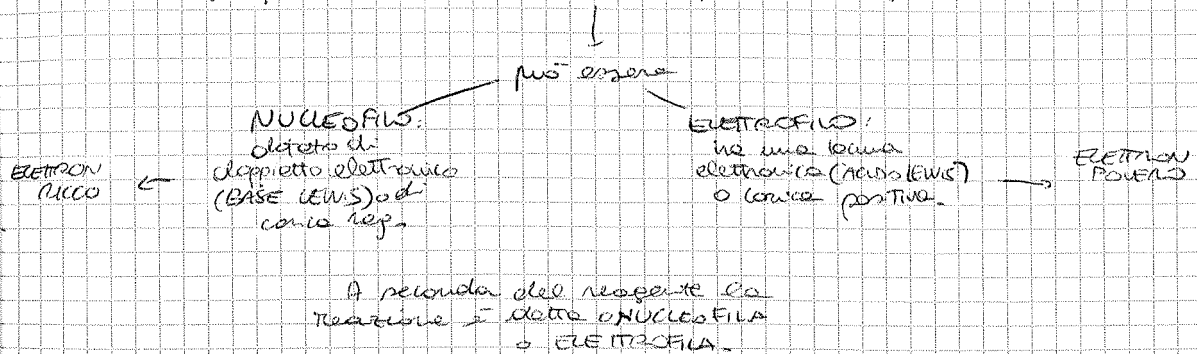 può essere
NUCLEOFILO:
dotato di
doppietto elettronico
(BASE LEWIS) o di
carica neg.
ELETTRON
RICCO
ELETTROFILO:
ha una lacuna
elettronica (ACIDO LEWIS)
o carica positiva.
ELETTRON
POVERO
A seconda del reagente la
reazione è detta o NUCLEOFILA
o ELETTROFILA.